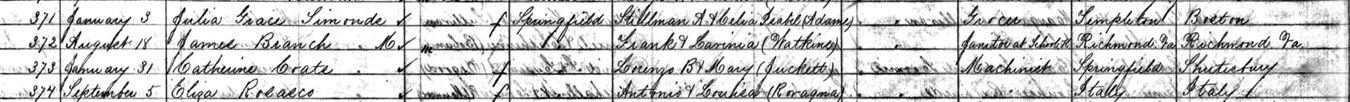 371 January 3 Julia Grace Simonds f Springfield Stillman A & Celia Isabel (Adams) Grocer Templeton Boston
372 August 18 James Branch M m Frank & Lavinia (Watkins) Janitor at Richmond Va Richmond Va.
373 January 31 Catherine Coats f Lorenzo B & Mary (Juckett) Machinist Springfield Shutesbury
374 September 5 Eliza Rosasco f Antonio & Louisa (Rovagma) Italy Italy